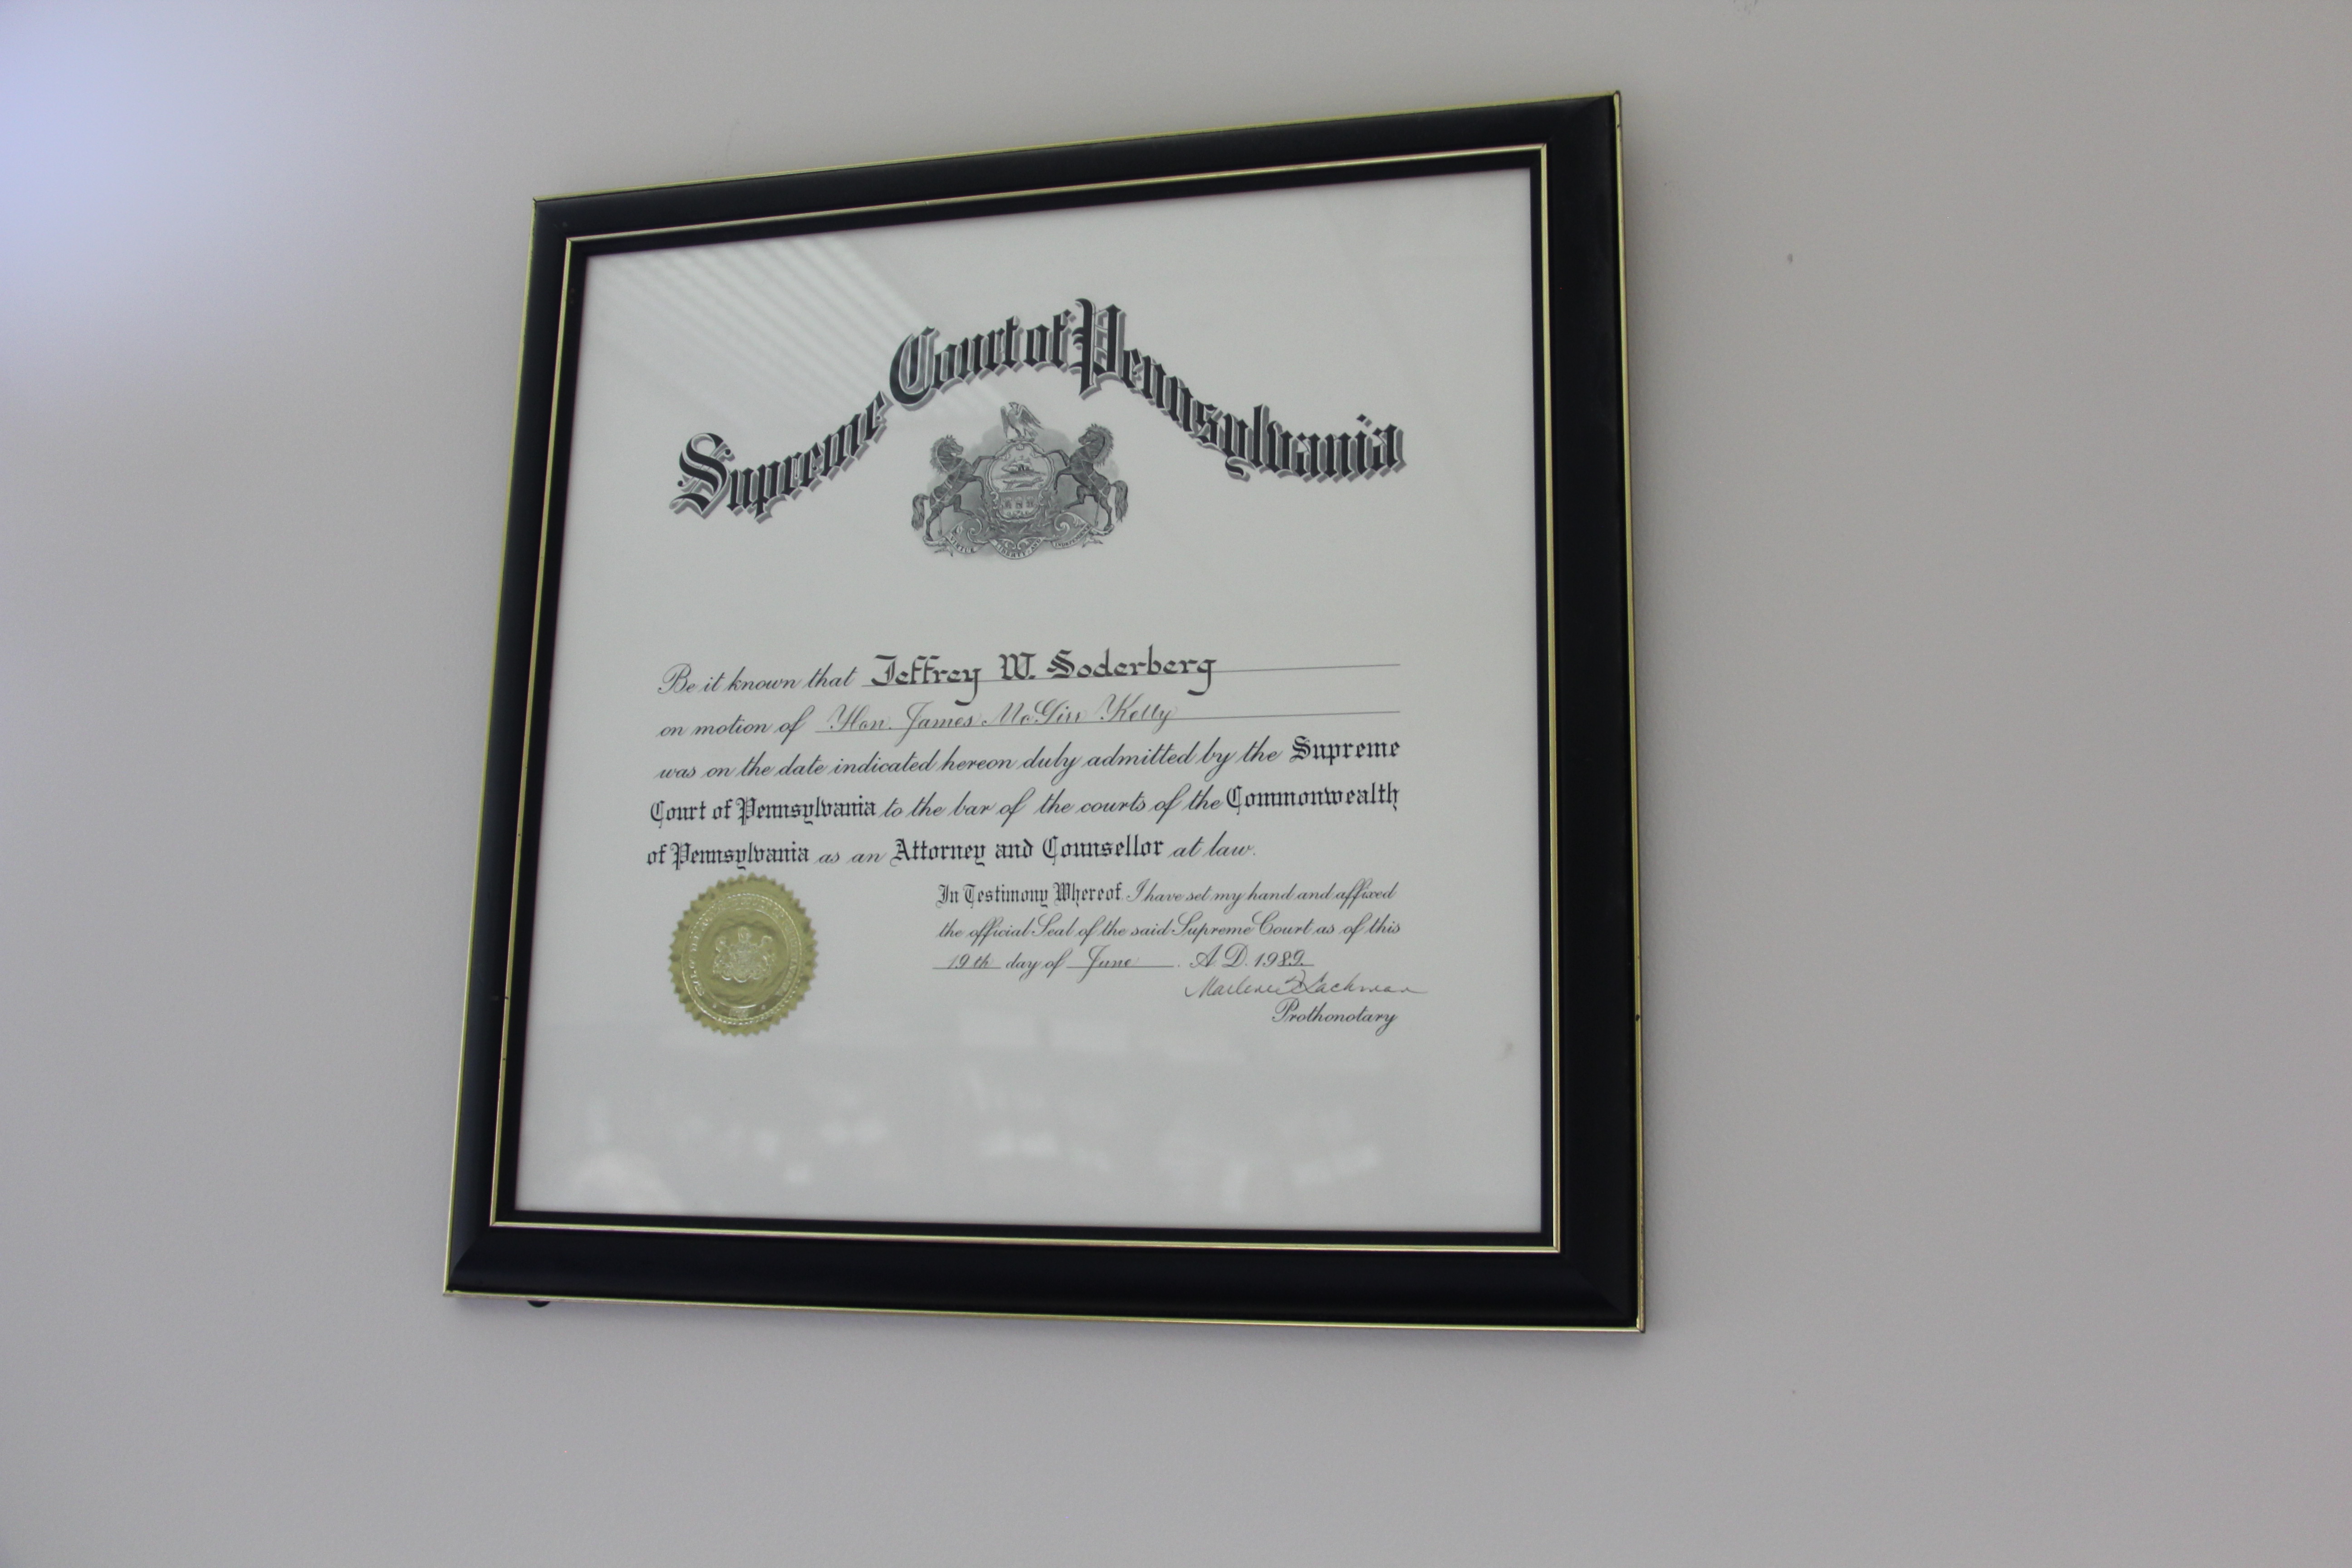 Supreme Court of Pennsylvania
VIRTUE LIBERTY AND INDEPENDENCE
Be it known that Jeffrey W. Soderberg
on motion of Hon. James McGirr Kelly
was on the date indicated hereon duly admitted by the Supreme
Court of Pennsylvania to the bar of the courts of the Commonwealth
of Pennsylvania as an Attorney and Counsellor at law.
In Testimony Whereof I have set my hand and affixed
the official Seal of the said Supreme Court as of this
19th day of June A.D. 1989.
Marlene F. Lachman
Prothonotary